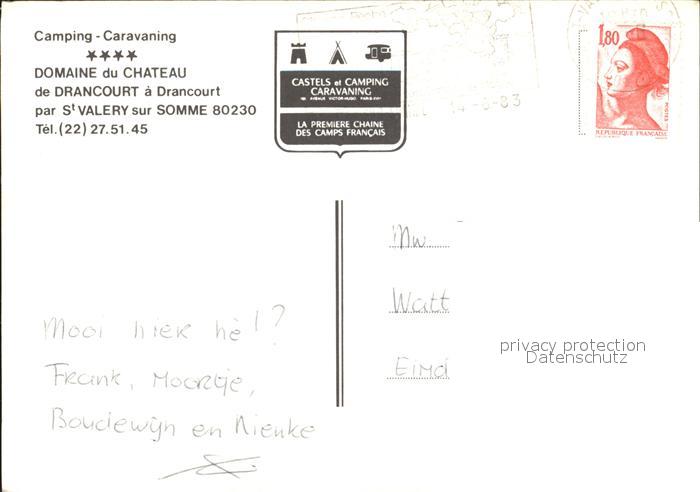 Camping - Caravaning
★★★★
DOMAINE du CHATEAU
de DRANCOURT à Drancourt
par St VALERY sur SOMME 80230
Tél. (22) 27.51.45
CASTELS et CAMPING
CARAVANING
LA PREMIÈRE CHAINE
DES CAMPS FRANÇAIS
14-6-83
1,80
POSTES
REPUBLIQUE FRANÇAISE
Mw
Watt
Eind
privacy protection
Datenschutz
Mooi hier hè!?
Frank, Moortje,
Boudewijn en Nienke